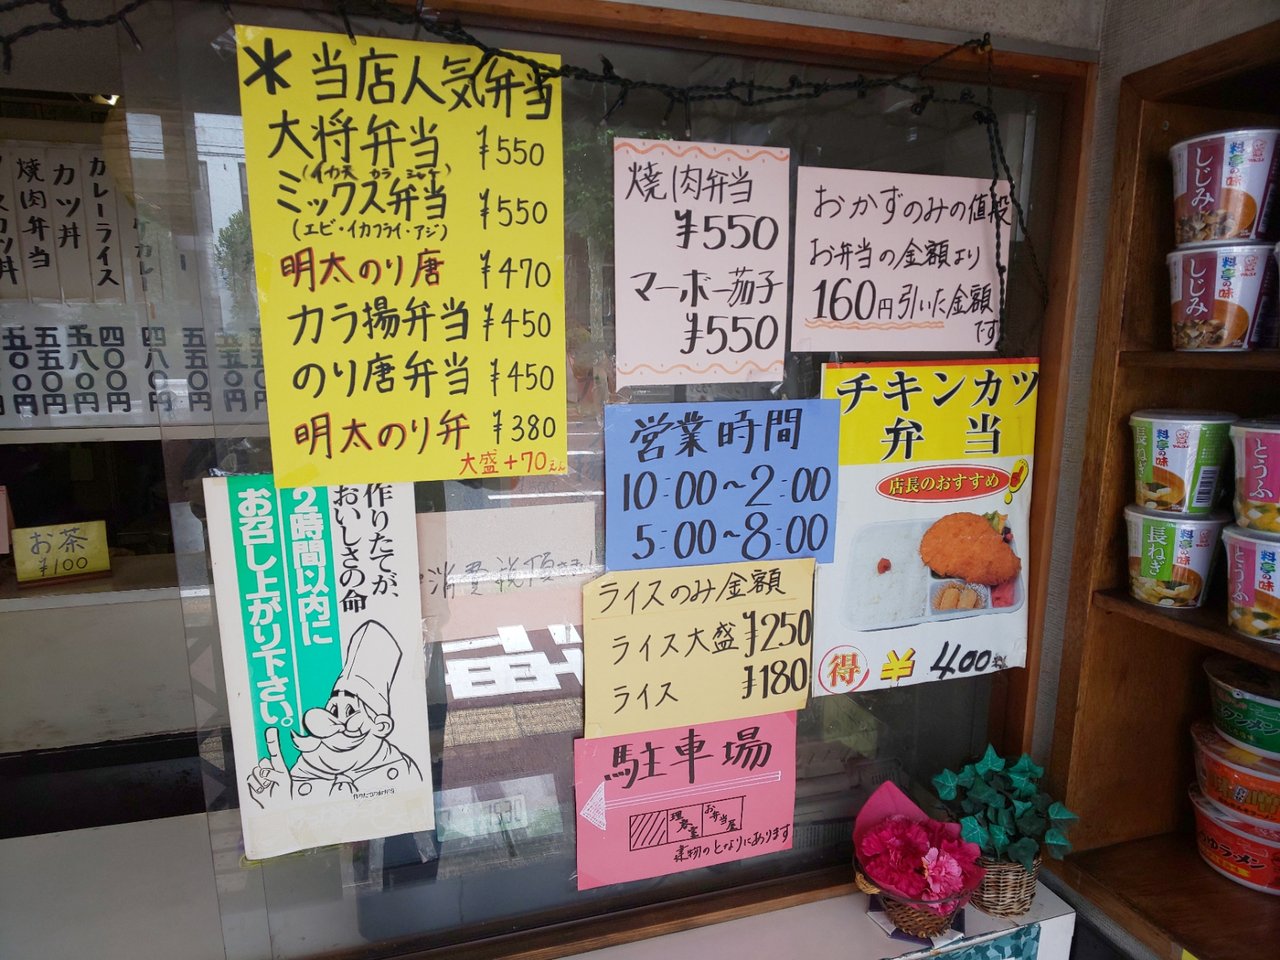 ＊当店人気弁当
大将弁当 ¥550
ミックス弁当 ¥550
(エビ・イカフライ・アジ)
明太のり唐 ¥470
カラ揚弁当 ¥450
のり唐弁当 ¥450
明太のり弁 ¥380
大盛+70えん
焼肉弁当
¥550
マーボー茄子
¥550
おかずのみの値段
お弁当の金額より
160円引いた金額
です
チキンカツ
弁当
店長のおすすめ
得
400
営業時間
10:00～2:00
5:00～8:00
ライスのみ金額
ライス大盛 ¥250
ライス ¥180
駐車場
理容室
お弁当屋
建物のとなりにあります
作りたてが、
おいしさの命
2時間以内に
お召し上がり下さい。
お茶
¥100
カレーライス
カツ丼
焼肉弁当
四〇〇円
五八〇円
五五〇円
料亭の味
しじみ
料亭の味
しじみ
料亭の味
長ねぎ
料亭の味
とうふ
料亭の味
長ねぎ
料亭の味
とうふ